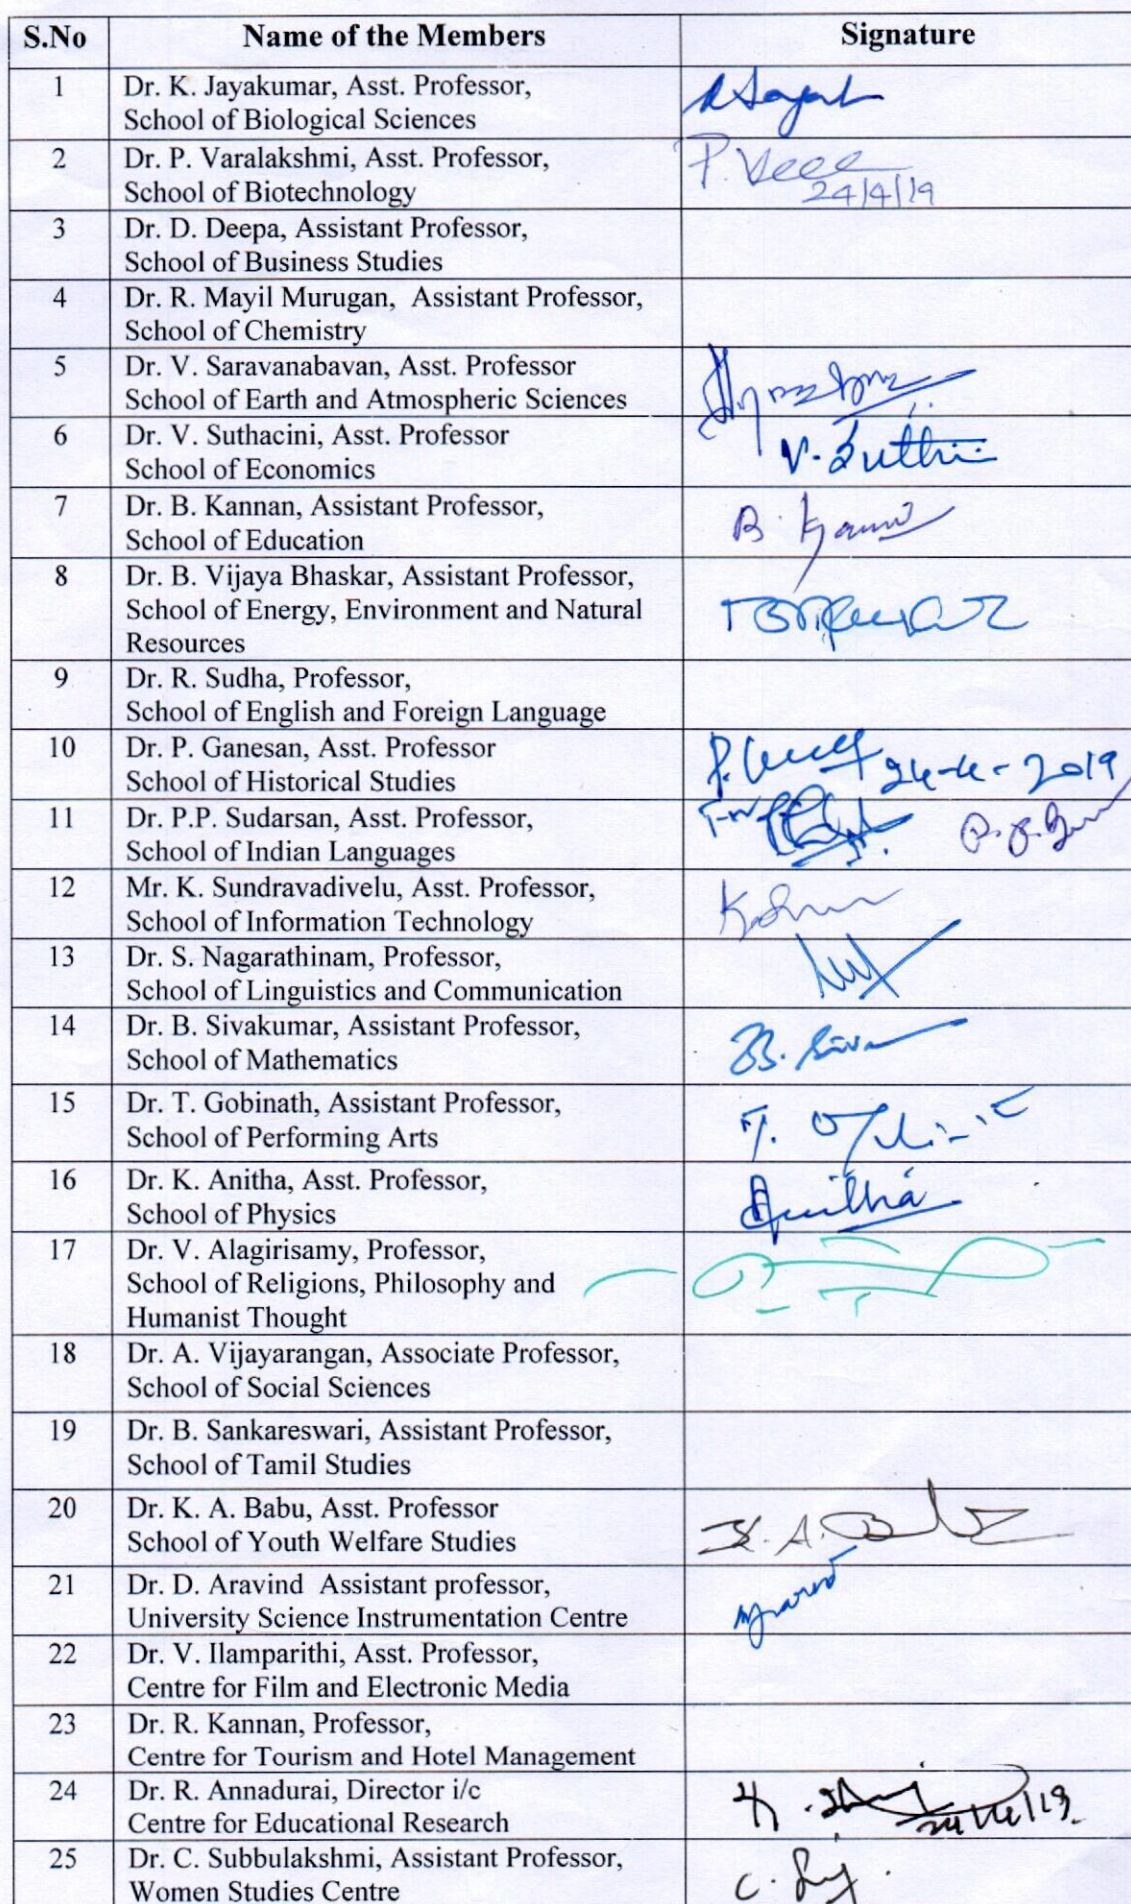 S.No Name of the Members Signature
1 Dr. K. Jayakumar, Asst. Professor,
School of Biological Sciences
2 Dr. P. Varalakshmi, Asst. Professor,
School of Biotechnology
P.
24/4/19
3 Dr. D. Deepa, Assistant Professor,
School of Business Studies
4 Dr. R. Mayil Murugan, Assistant Professor,
School of Chemistry
5 Dr. V. Saravanabavan, Asst. Professor
School of Earth and Atmospheric Sciences
6 Dr. V. Suthacini, Asst. Professor
School of Economics
V.
7 Dr. B. Kannan, Assistant Professor,
School of Education
B.
8 Dr. B. Vijaya Bhaskar, Assistant Professor,
School of Energy, Environment and Natural
Resources
9 Dr. R. Sudha, Professor,
School of English and Foreign Language
10 Dr. P. Ganesan, Asst. Professor
School of Historical Studies
24-4-2019
11 Dr. P.P. Sudarsan, Asst. Professor,
School of Indian Languages
12 Mr. K. Sundravadivelu, Asst. Professor,
School of Information Technology
13 Dr. S. Nagarathinam, Professor,
School of Linguistics and Communication
14 Dr. B. Sivakumar, Assistant Professor,
School of Mathematics
B. Siva
15 Dr. T. Gobinath, Assistant Professor,
School of Performing Arts
16 Dr. K. Anitha, Asst. Professor,
School of Physics
Anitha
17 Dr. V. Alagirisamy, Professor,
School of Religions, Philosophy and
Humanist Thought
18 Dr. A. Vijayarangan, Associate Professor,
School of Social Sciences
19 Dr. B. Sankareswari, Assistant Professor,
School of Tamil Studies
20 Dr. K. A. Babu, Asst. Professor
School of Youth Welfare Studies
K. A. Babu
21 Dr. D. Aravind Assistant professor,
University Science Instrumentation Centre
22 Dr. V. Ilamparithi, Asst. Professor,
Centre for Film and Electronic Media
23 Dr. R. Kannan, Professor,
Centre for Tourism and Hotel Management
24 Dr. R. Annadurai, Director i/c
Centre for Educational Research
24/4/19
25 Dr. C. Subbulakshmi, Assistant Professor,
Women Studies Centre
C.